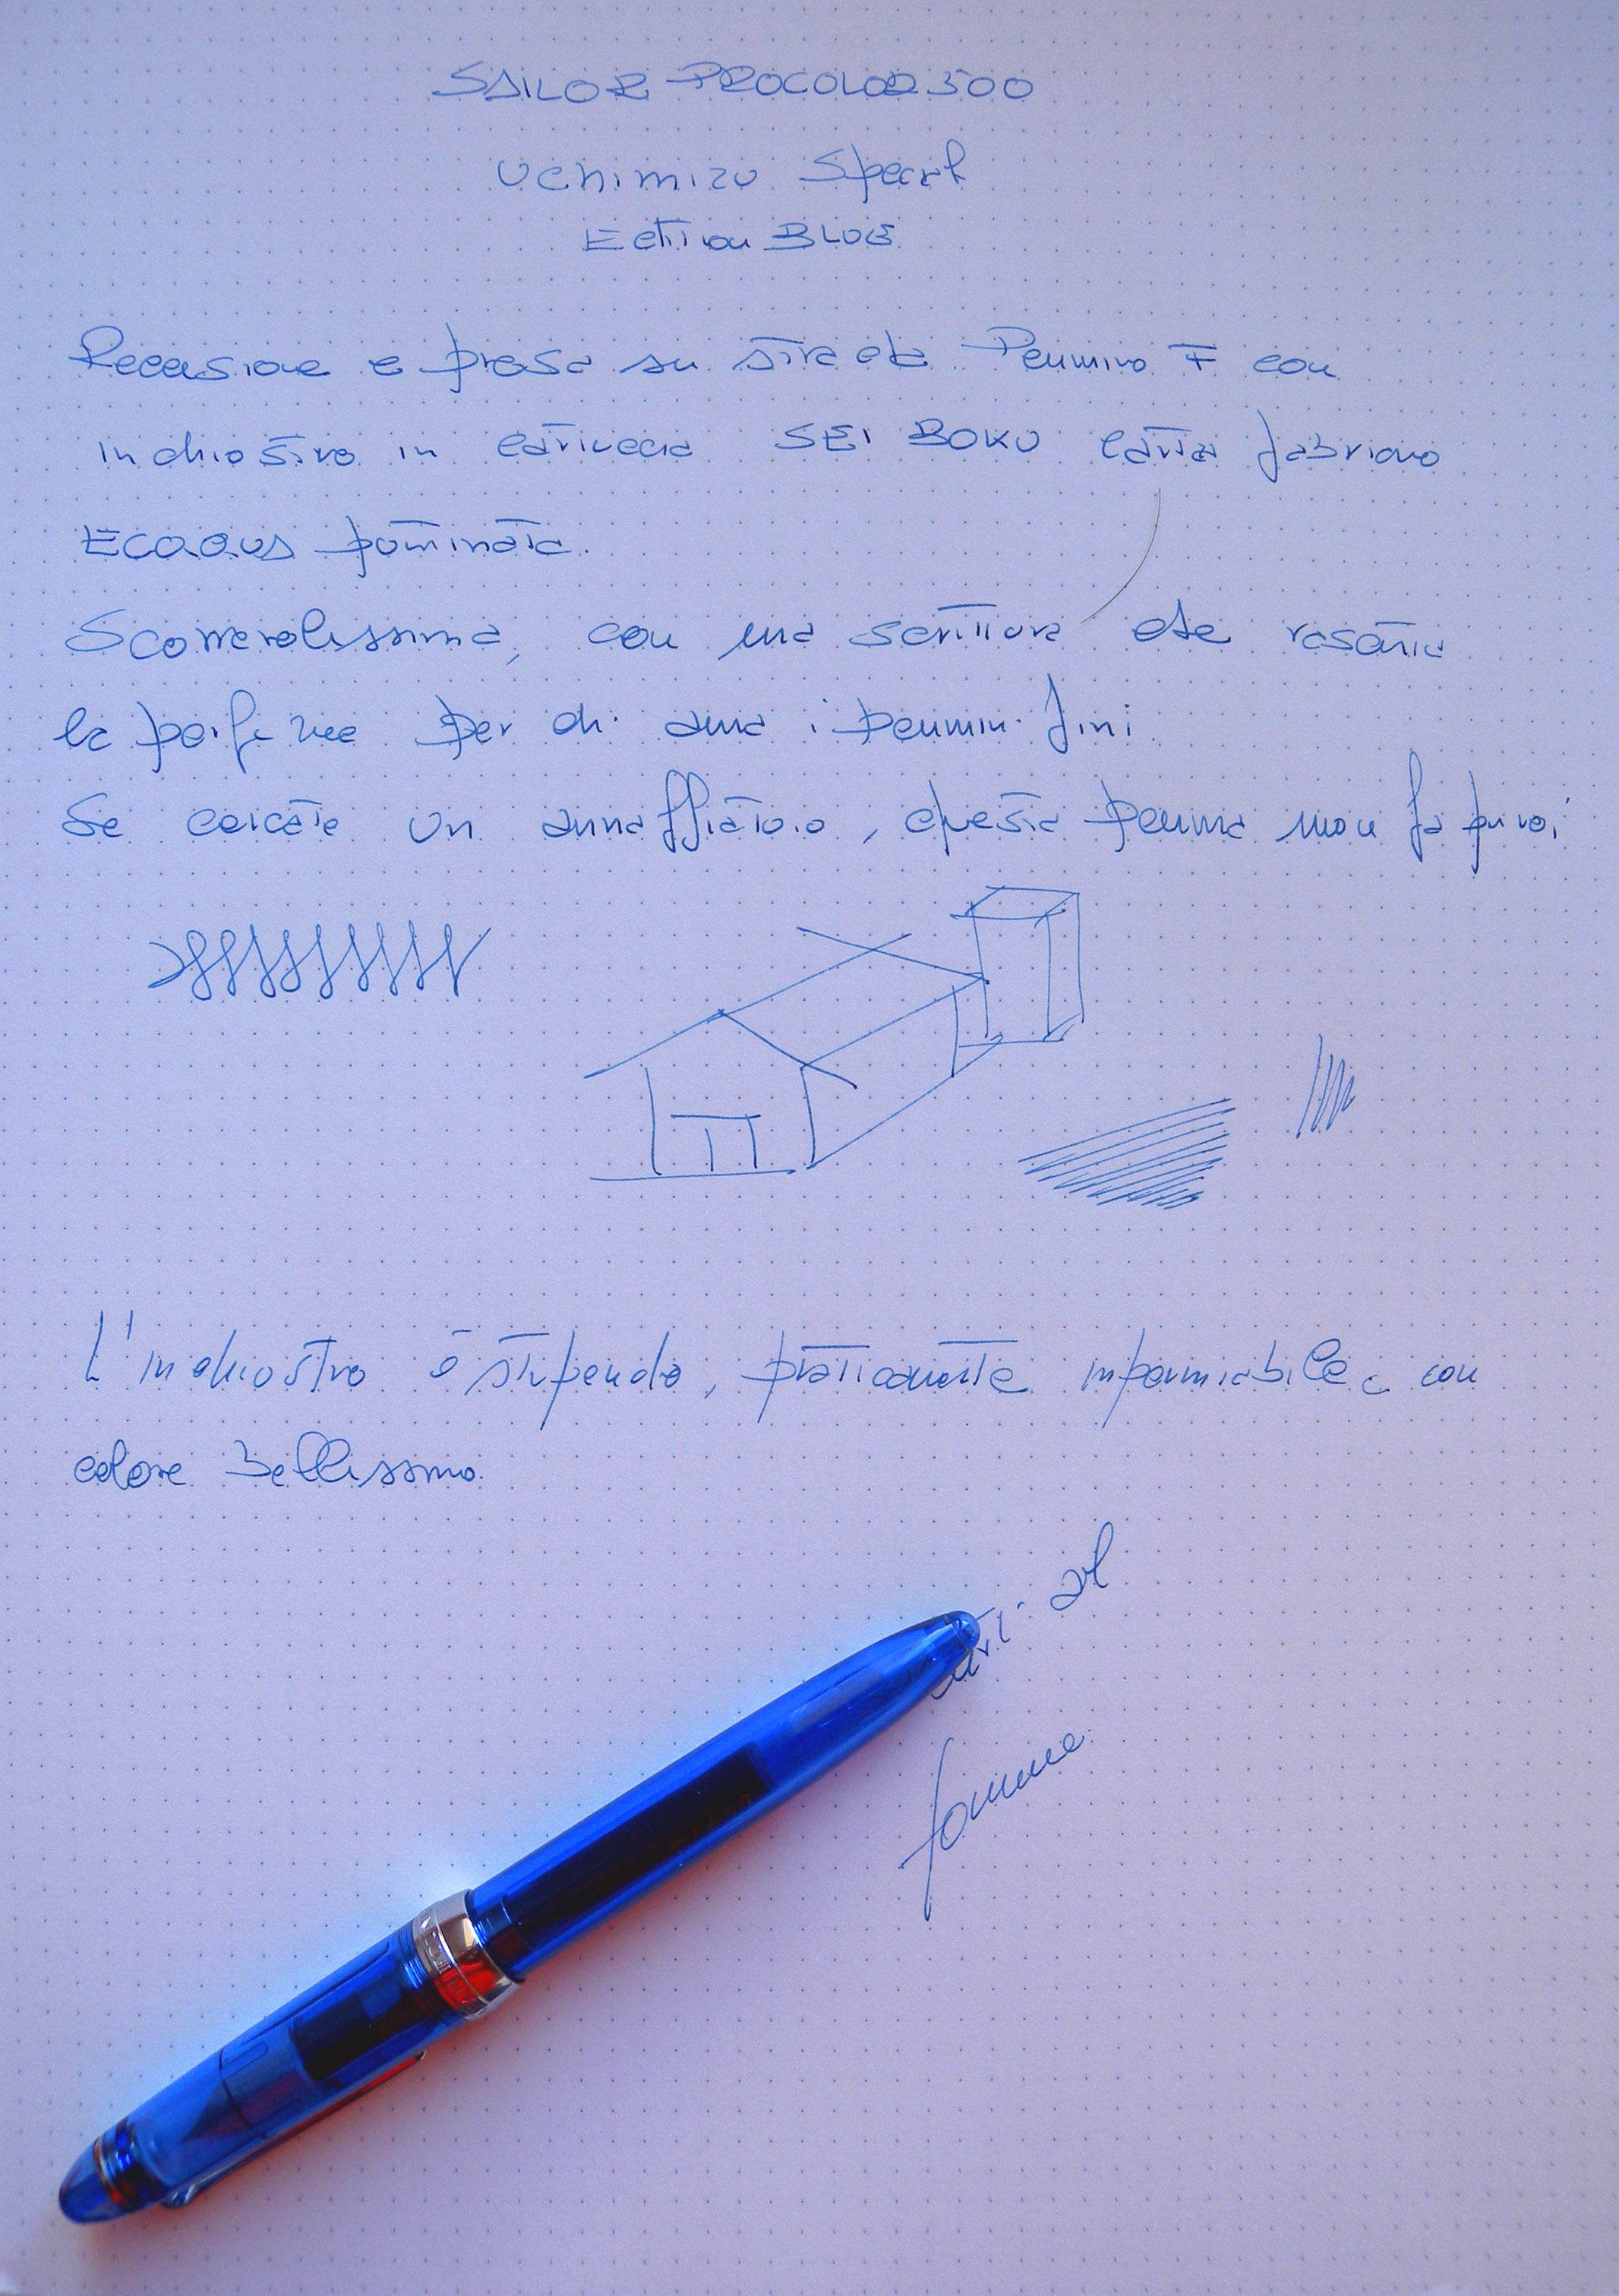 SAILOR PROCOLOR 500
Uchimizu Special
Edition BLUE
Recensione e prosa su strada Pennino F con
inchiostro in cartuccia SEI BOKU carta fabriano
ECOQUA puntinata.
Scorrevolissima, con una scrittura che rasenta
la perfezione per chi ama i pennini fini
Se cercate un annaffiatoio, questa penna non fa per voi
L'inchiostro è stupendo, praticamente impermiabile e con
colore bellissimo.
al